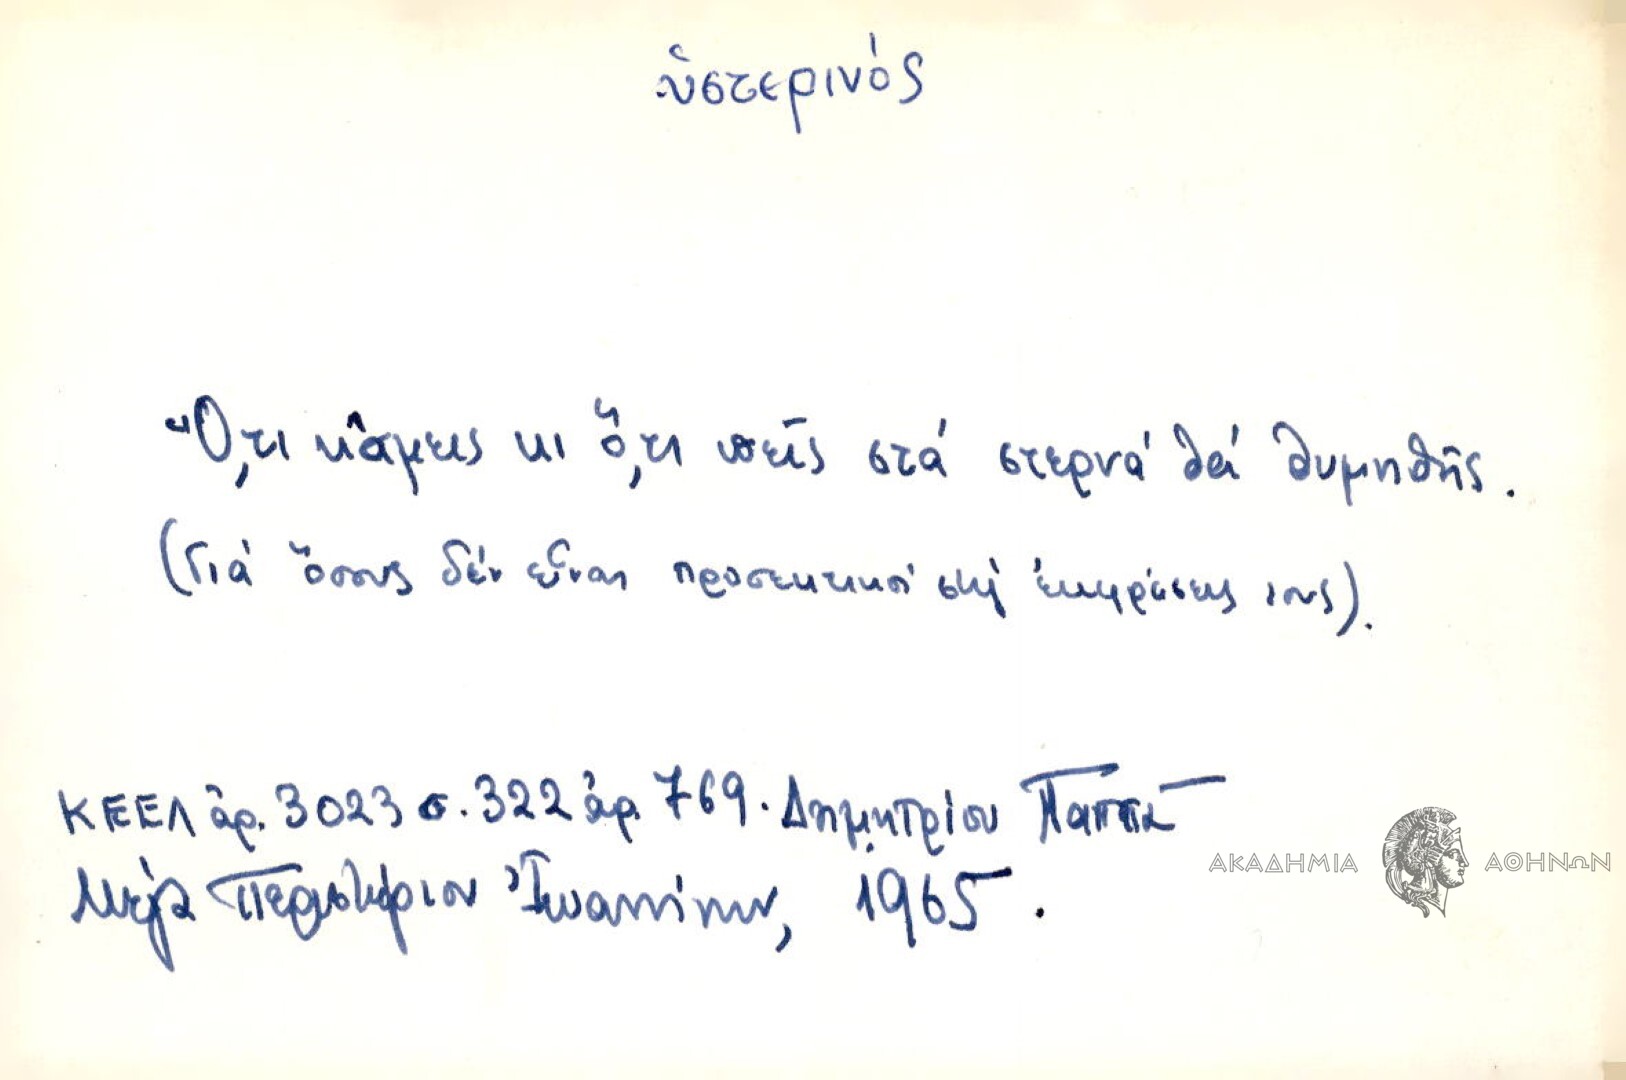 ὑστερινός
Ὅ,τι κάμεις κι ὅ,τι πεῖς στά στερνά θά θυμηθῆς.
(Γιά ὅσους δέν εἶναι προσεκτικοί στίς ἐκφράσεις τους).
ΚΕΕΛ ἀρ. 3023 σ. 322 ἀρ. 769. Δημητρίου Παππᾶ
Μεγάλο Περιστέριον Ἰωαννίνων, 1965.
ΑΚΑΔΗΜΙΑ ΑΘΗΝΩΝ